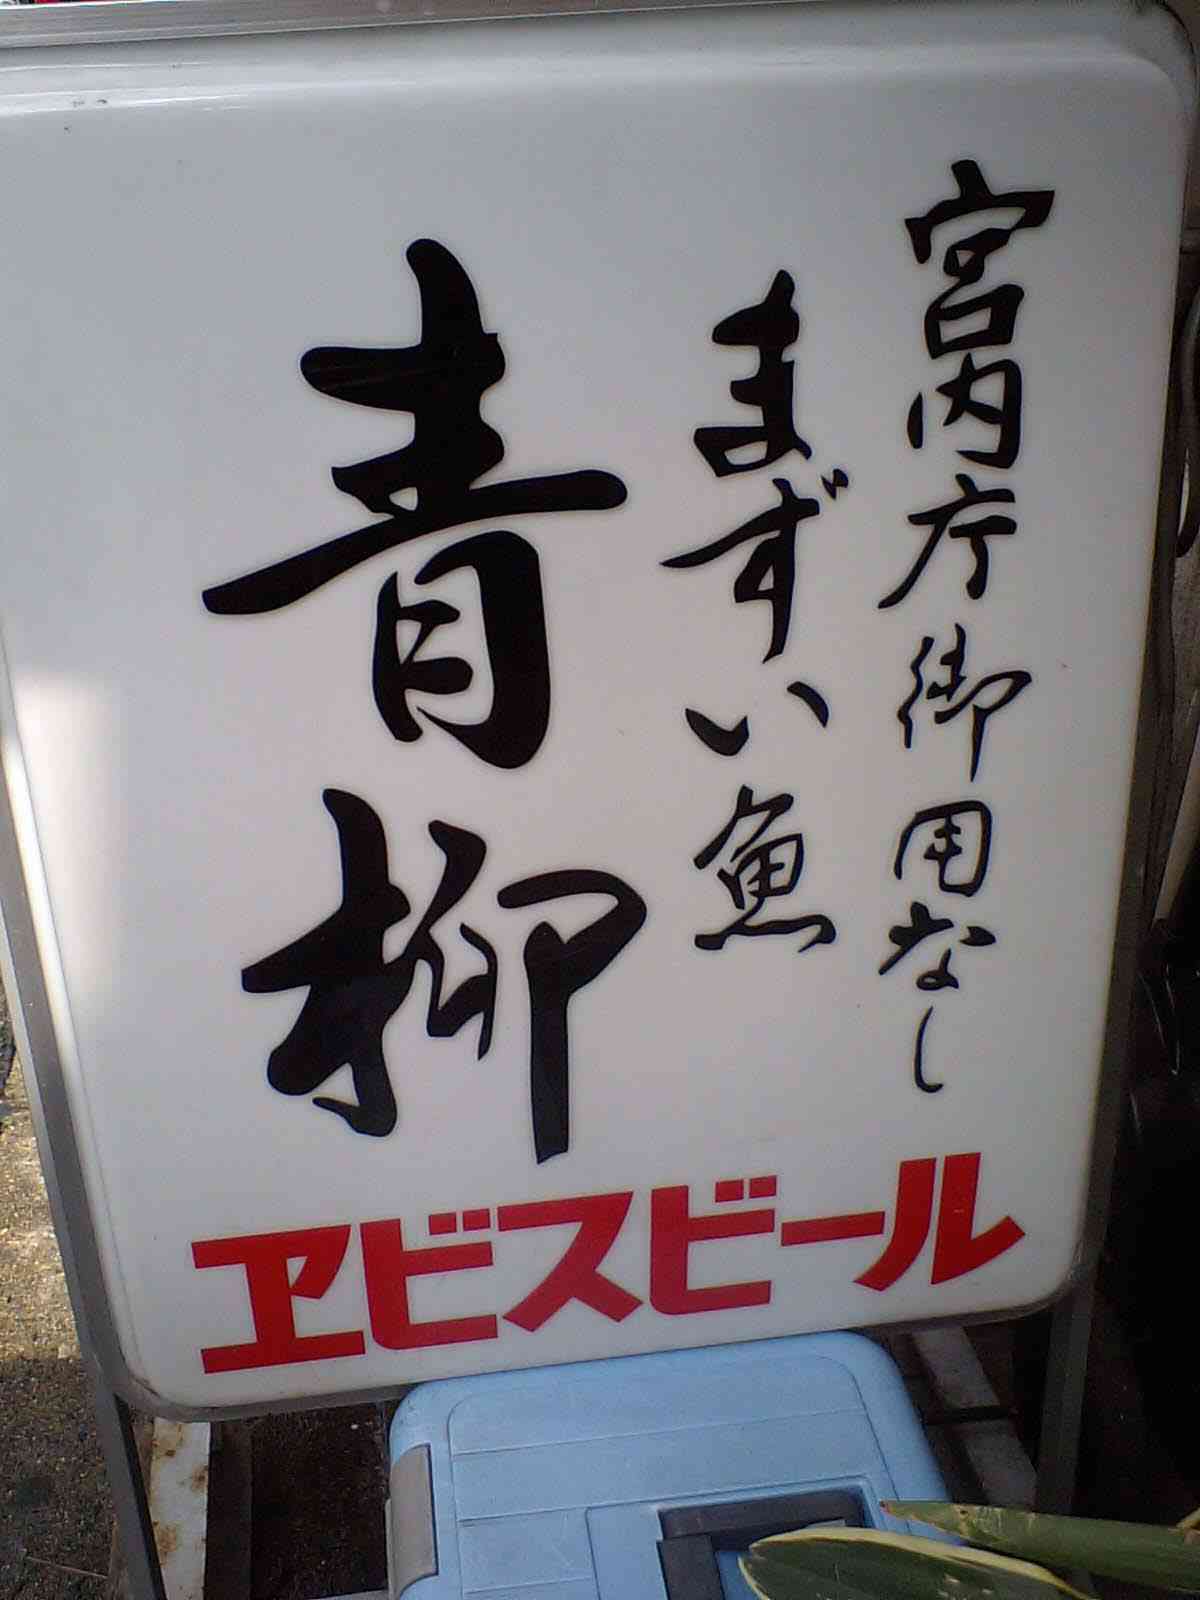 宮内庁御用なし
まずい魚
青柳
ヱビスビール